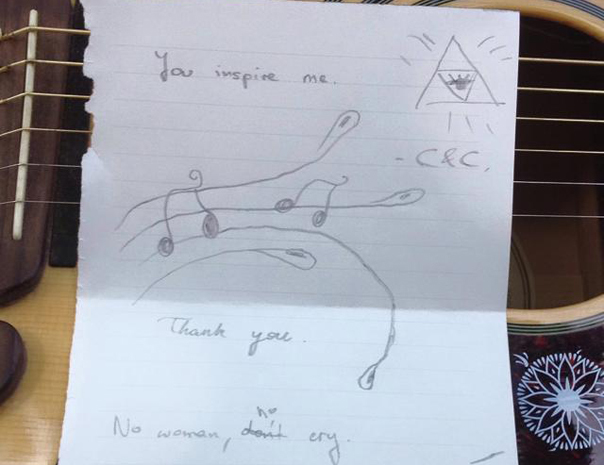 You inspire me.
- C&C.
Thank you.
No woman, don't no cry.